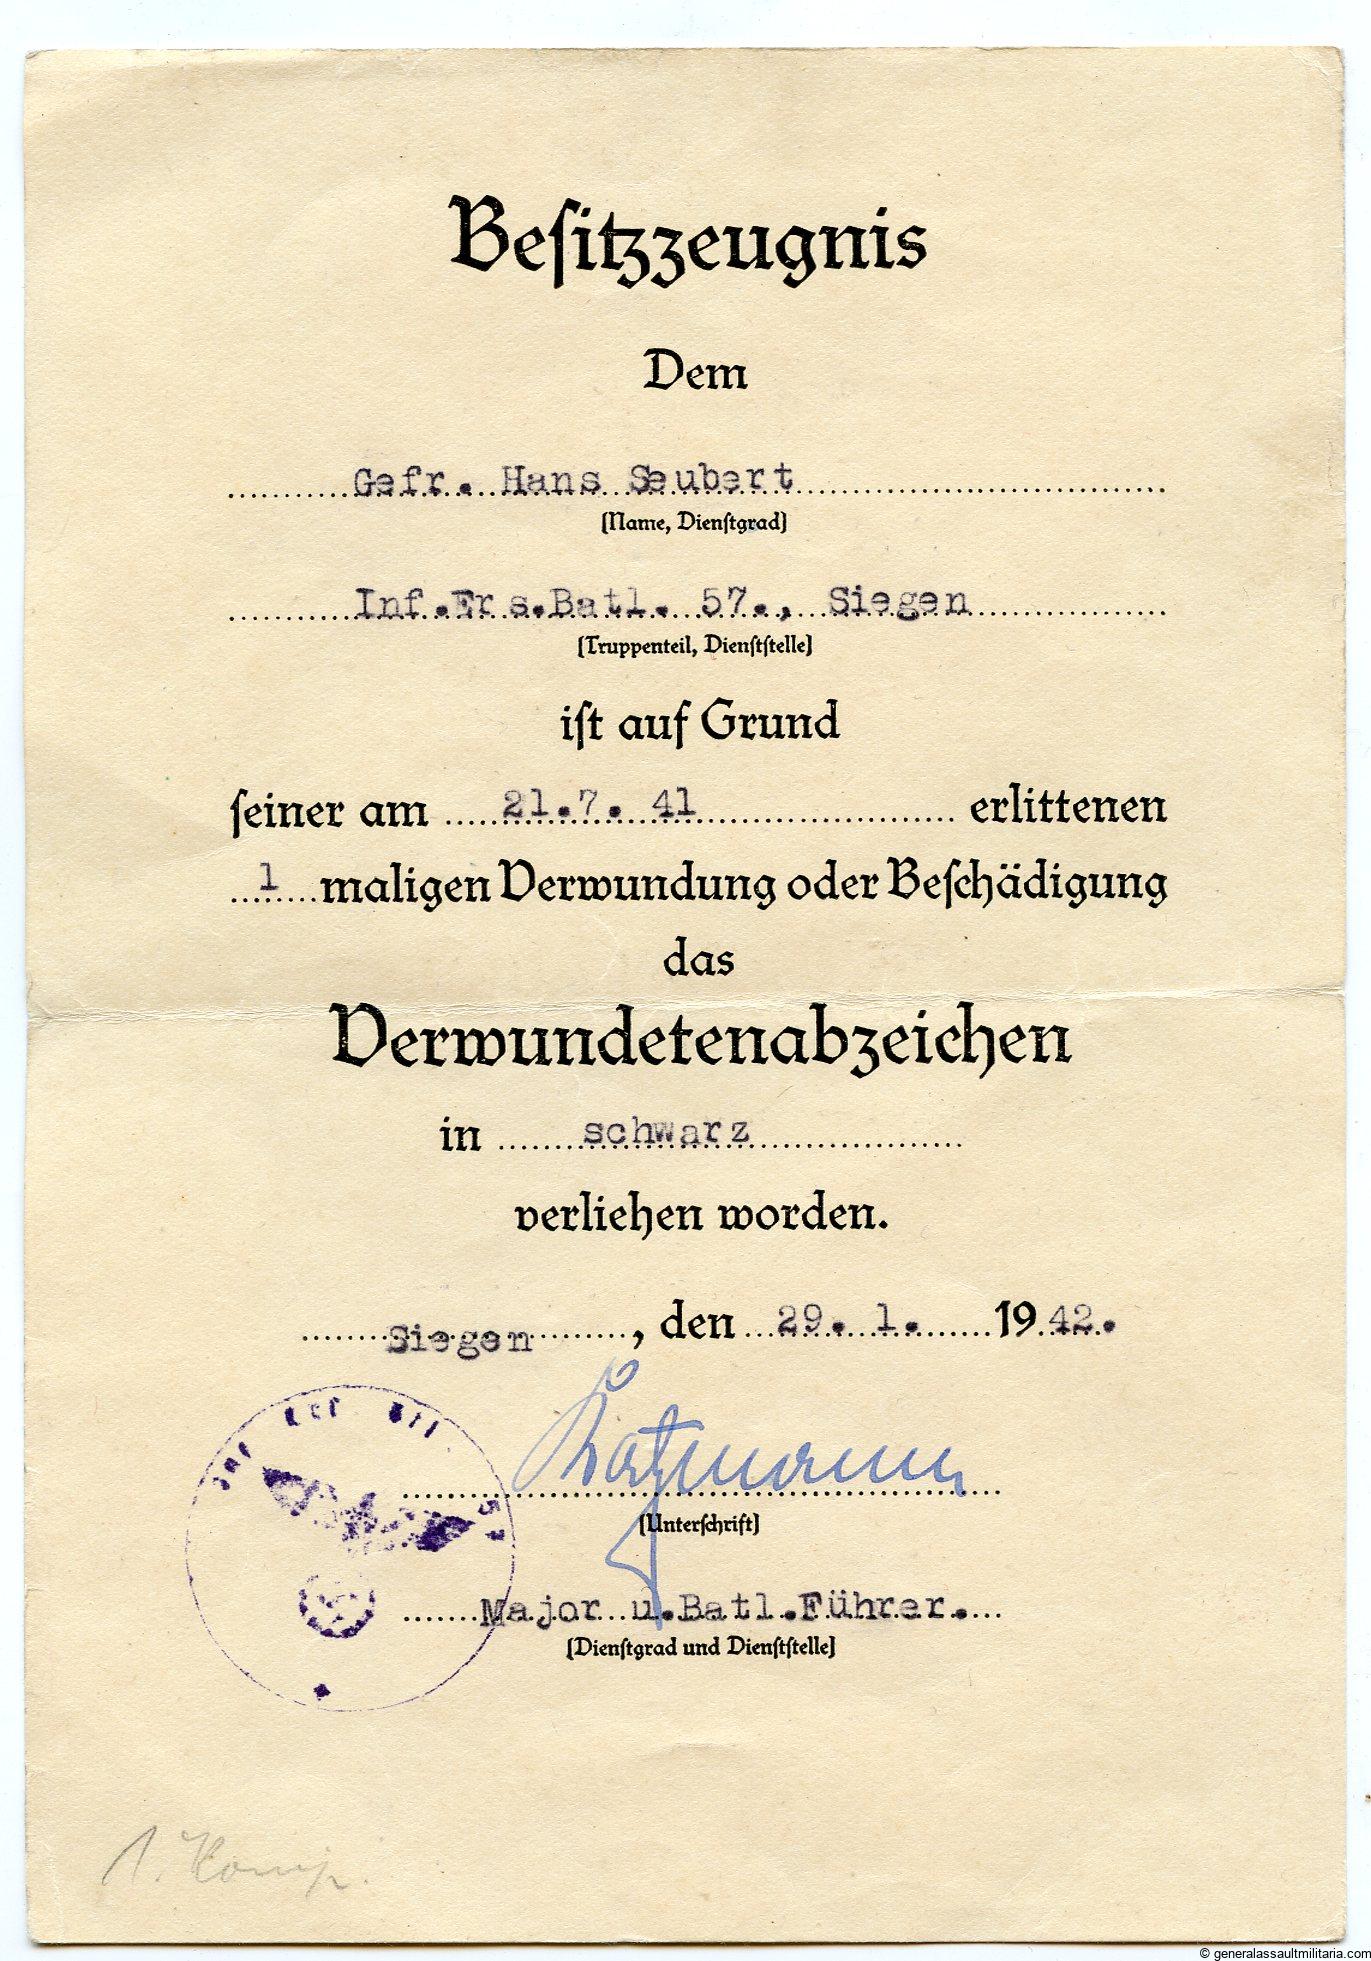 Besitzzeugnis
Dem
Gefr. Hans Seubert
(Name, Dienstgrad)
Inf.Ers.Batl. 57., Siegen
(Truppenteil, Dienststelle)
ist auf Grund
seiner am 21.7. 41 erlittenen
1 maligen Verwundung oder Beschädigung
das
Verwundetenabzeichen
in schwarz
verliehen worden.
Siegen, den 29. 1. 1942.
(Unterschrift)
Major u.Batl.Führer.
(Dienstgrad und Dienststelle)
1. Komp.
© generalassaultmilitaria.com